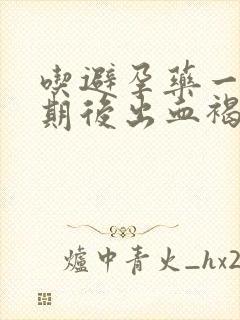 喫避孕藥一
期後出血褐
爐中青火_hx2